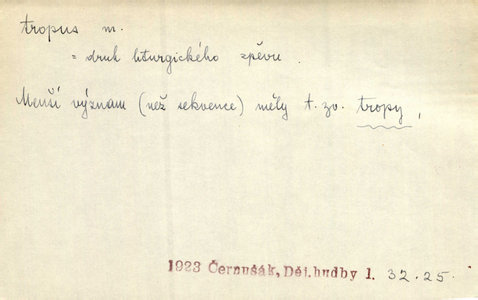 tropus m.
= druh liturgického zpěvu.
Menší význam (než sekvence) měly t. zv. tropy,
1923 Černušák, Děj. hudby 1. 32.25.